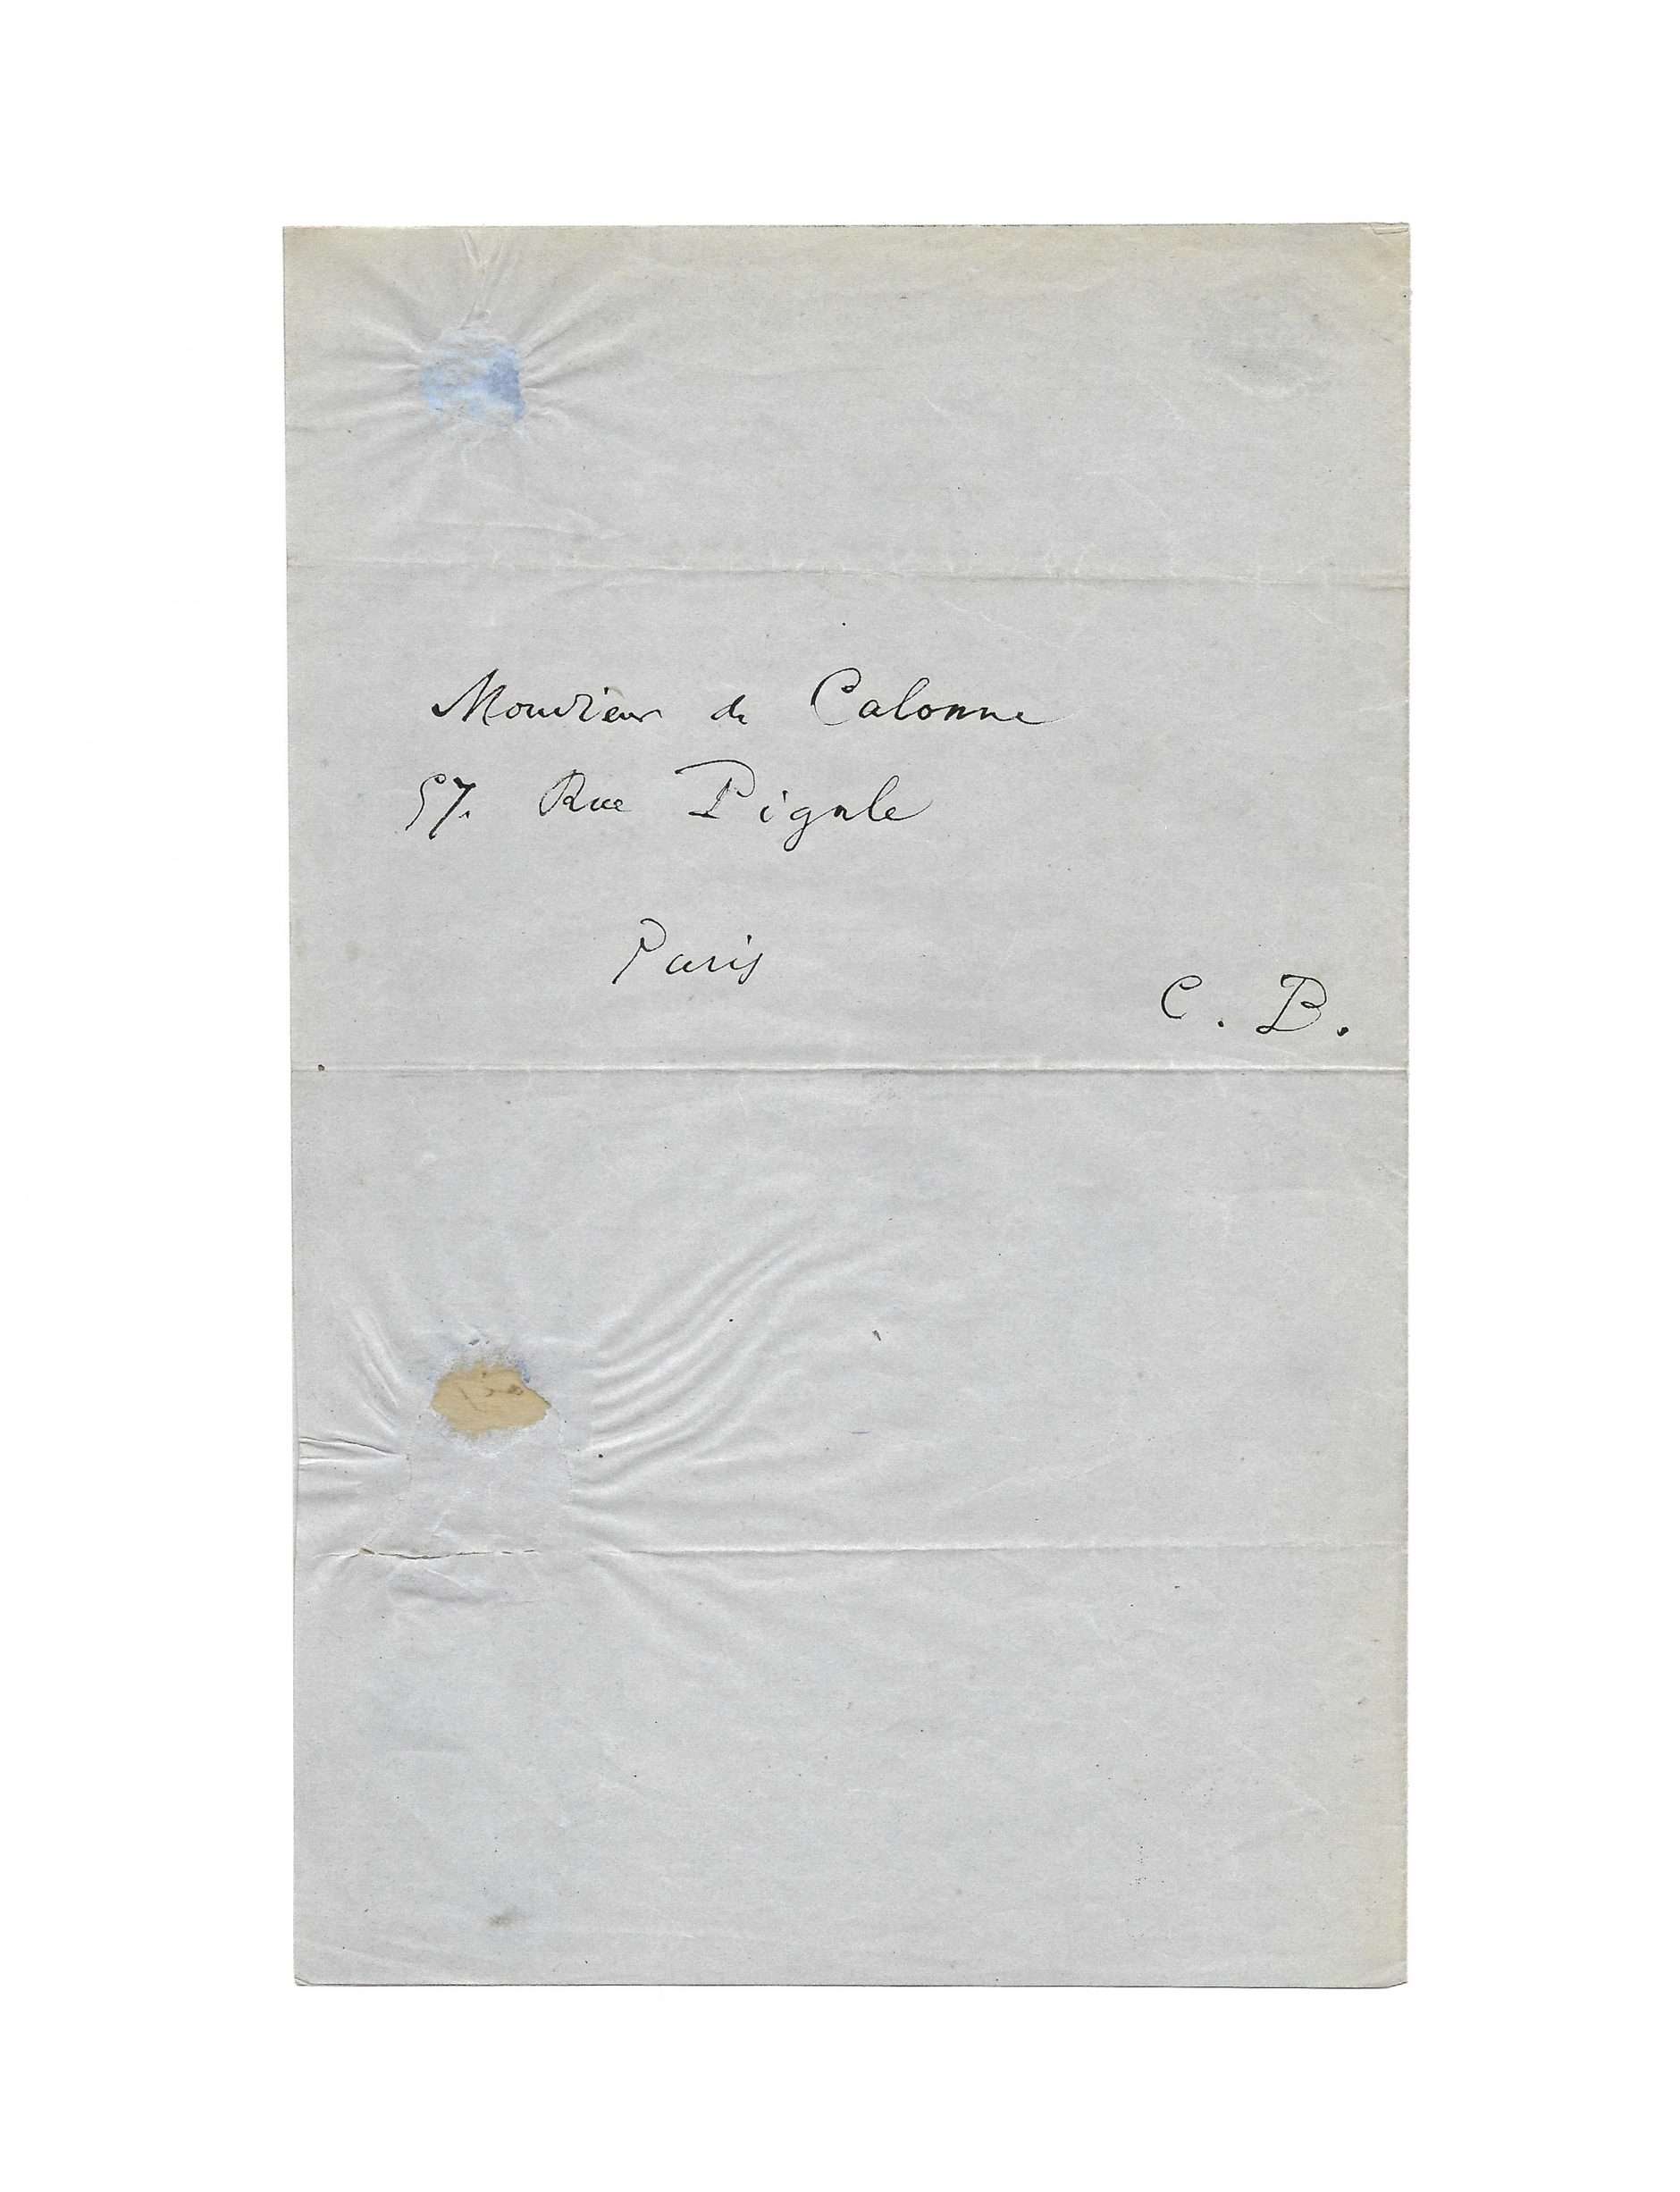 Monsieur de Calonne
57. Rue Pigale
Paris
C. B.